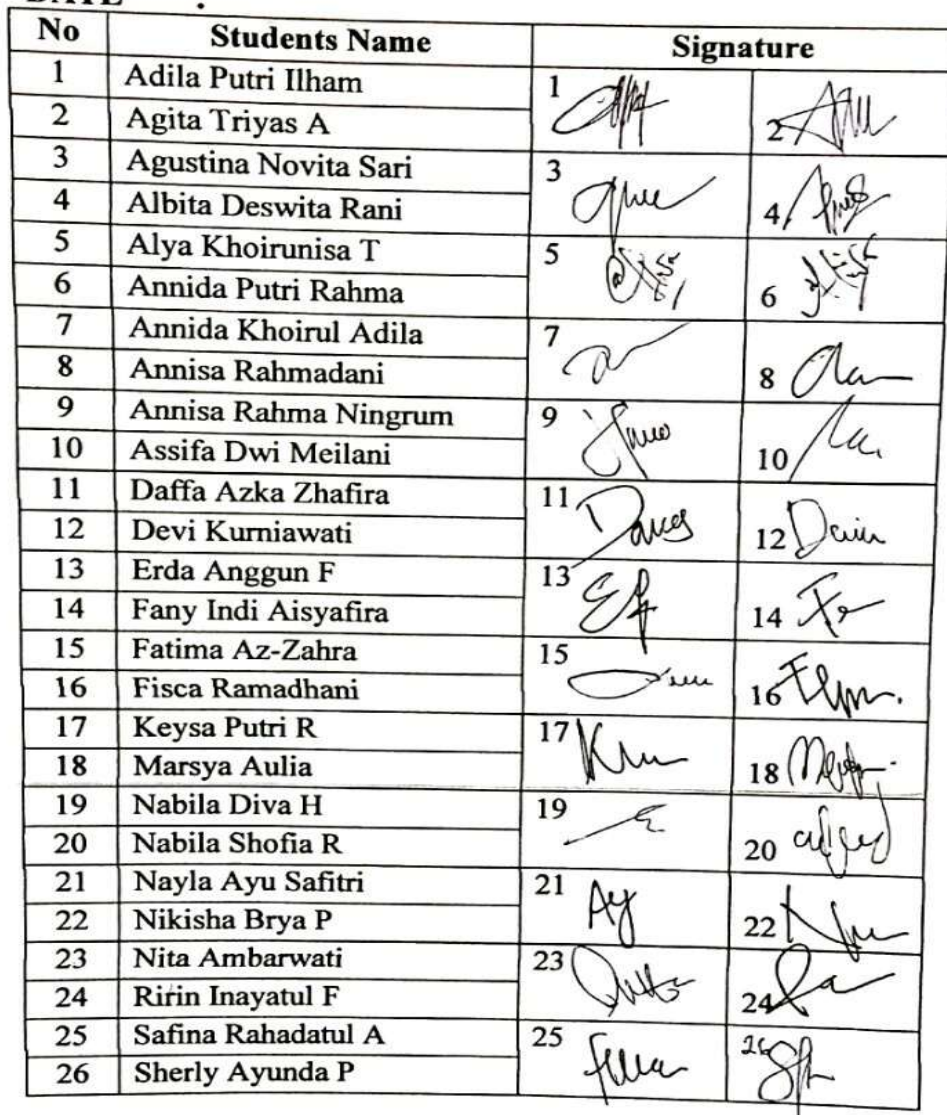 No Students Name Signature
1 Adila Putri Ilham 1
2 Agita Triyas A 2
3 Agustina Novita Sari 3
4 Albita Deswita Rani 4
5 Alya Khoirunisa T 5
6 Annida Putri Rahma 6
7 Annida Khoirul Adila 7
8 Annisa Rahmadani 8
9 Annisa Rahma Ningrum 9
10 Assifa Dwi Meilani 10
11 Daffa Azka Zhafira 11
12 Devi Kurniawati 12
13 Erda Anggun F 13
14 Fany Indi Aisyafira 14
15 Fatima Az-Zahra 15
16 Fisca Ramadhani 16
17 Keysa Putri R 17
18 Marsya Aulia 18
19 Nabila Diva H 19
20 Nabila Shofia R 20
21 Nayla Ayu Safitri 21 Ay
22 Nikisha Brya P 22
23 Nita Ambarwati 23
24 Ririn Inayatul F 24
25 Safina Rahadatul A 25
26 Sherly Ayunda P 26